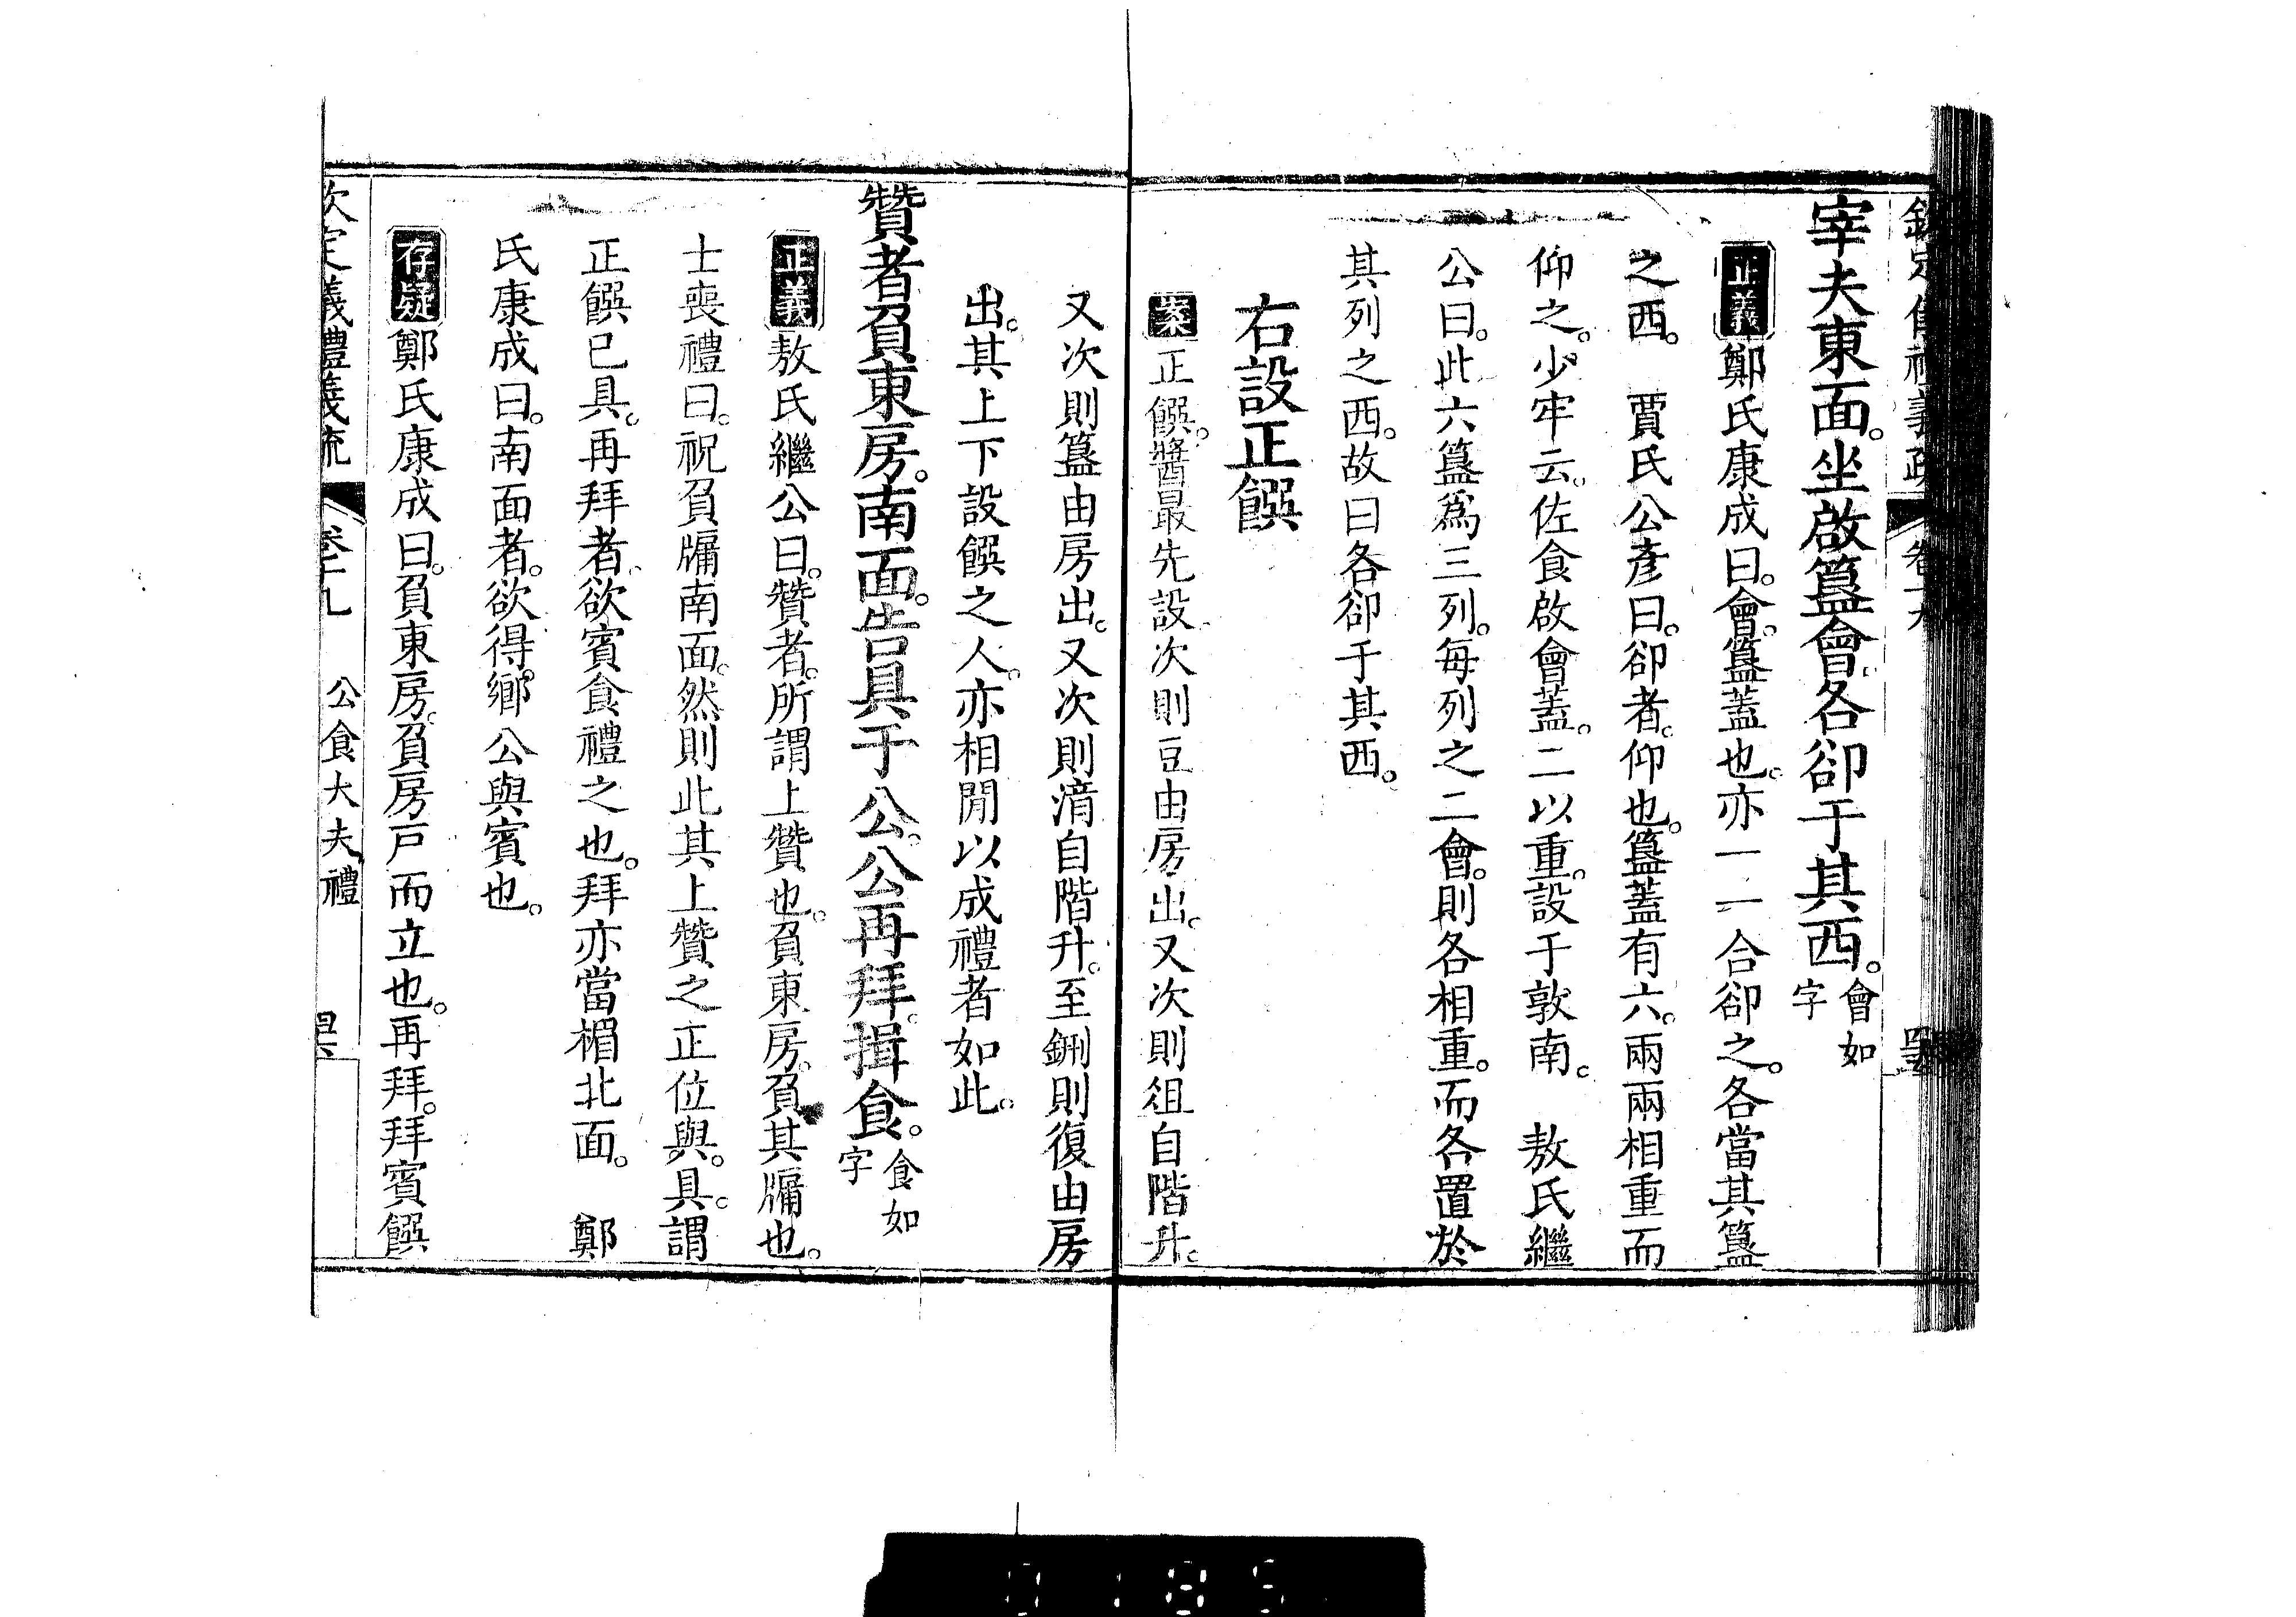 欽定儀禮義疏 卷十九
宰夫東面。坐啟簋會。各卻于其西。會如字
正義鄭氏康成曰。會。簋蓋也。亦一一合卻之。各當其簋
之西。 賈氏公彥曰。卻者。仰也。簋蓋有六。兩兩相重而
仰之。少牢云。佐食啟會蓋。二以重。設于敦南。 敖氏繼
公曰。此六簋為三列。每列之二會。則各相重。而各置於
其列之西。故曰各卻于其西。
右設正饌
案正饌。醬最先設次則豆由房出。又次則俎自階升。
又次則簋由房出。又次則湆自階升。至鉶則復由房
出。其上下設饌之人。亦相閒以成禮者如此。
贊者負東房。南面。告具于公。公再拜。揖食。食如字
正義敖氏繼公曰。贊者。所謂上贊也。負東房。負其牖也。
士喪禮曰。祝負牖南面。然則此其上贊之正位與。具。謂
正饌已具。再拜者。欲賓食禮之也。拜亦當楣北面。 鄭
氏康成曰。南面者。欲得鄉公與賓也。
存疑鄭氏康成曰。負東房。負房戶而立也。再拜。拜賓饌
欽定義禮義疏 卷十九 公食大夫禮